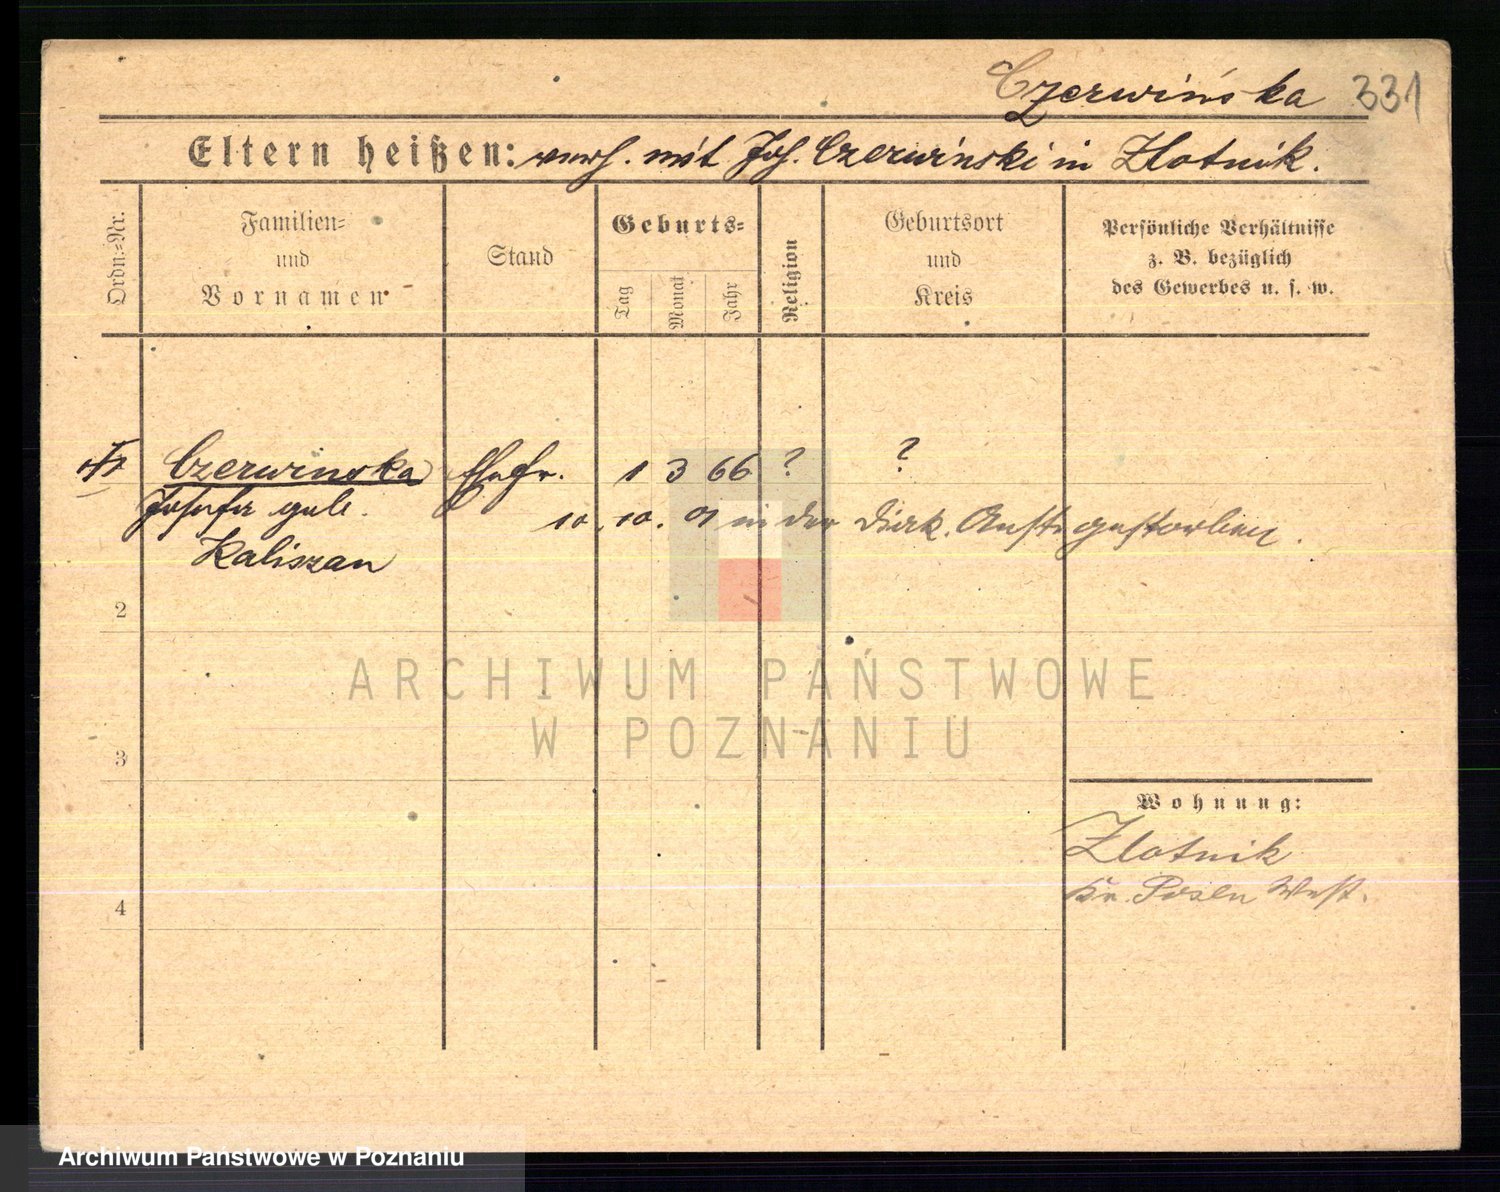 Czerwińska 331
Eltern heißen: verh. mit Jos. Czerwinski in Zlotnik.
Ordn.-Nr.
Familien-
und
Vornamen
Stand
Geburts-
Tag
Monat
Jahr
Religion
Geburtsort
und
Kreis
Persönliche Verhältnisse
z. B. bezüglich
des Gewerbes u. s. w.
Czerwinska Ehefr. 1 3 66 ? ?
Josefa geb.
10. 10. 01 in der Diak. Anst. gestorben.
Kaliszan
2
3
4
Wohnung:
Zlotnik
Kr. Posen West.
ARCHIWUM PAŃSTWOWE
W POZNANIU
Archiwum Państwowe w Poznaniu